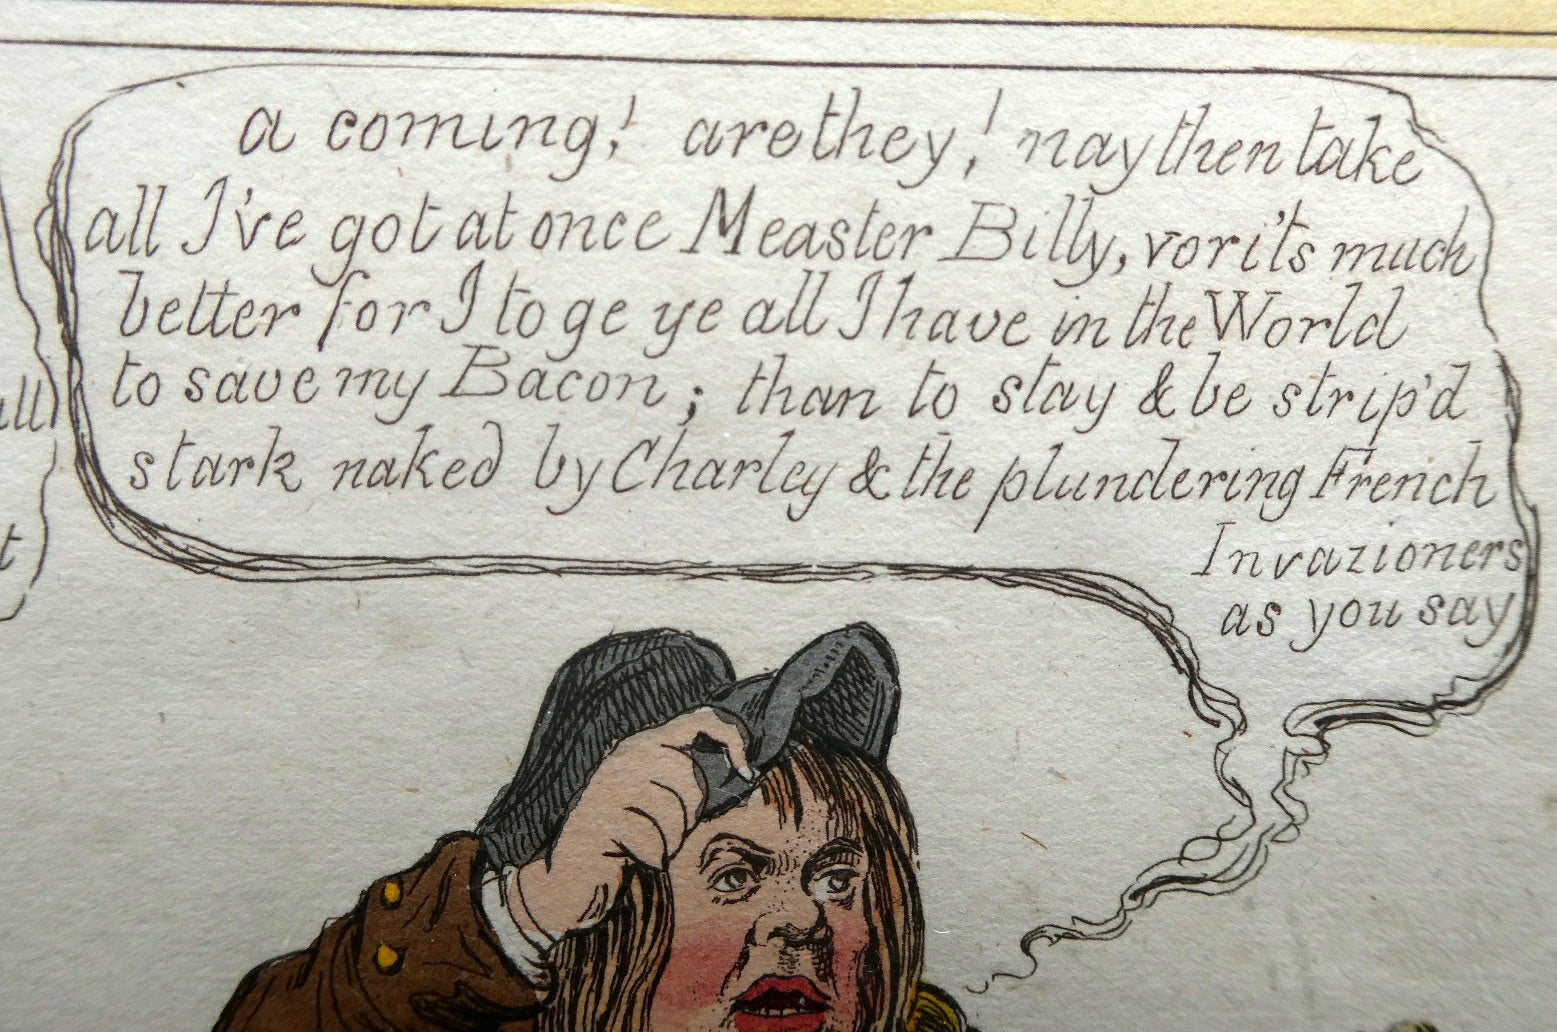 a coming! are they! nay then take
all I've got at once Measter Billy, vor it's much
better for I to ge ye all I have in the World
to save my Bacon; than to stay & be strip'd
stark naked by Charley & the plundering French
Invazioners
as you say
ll
t